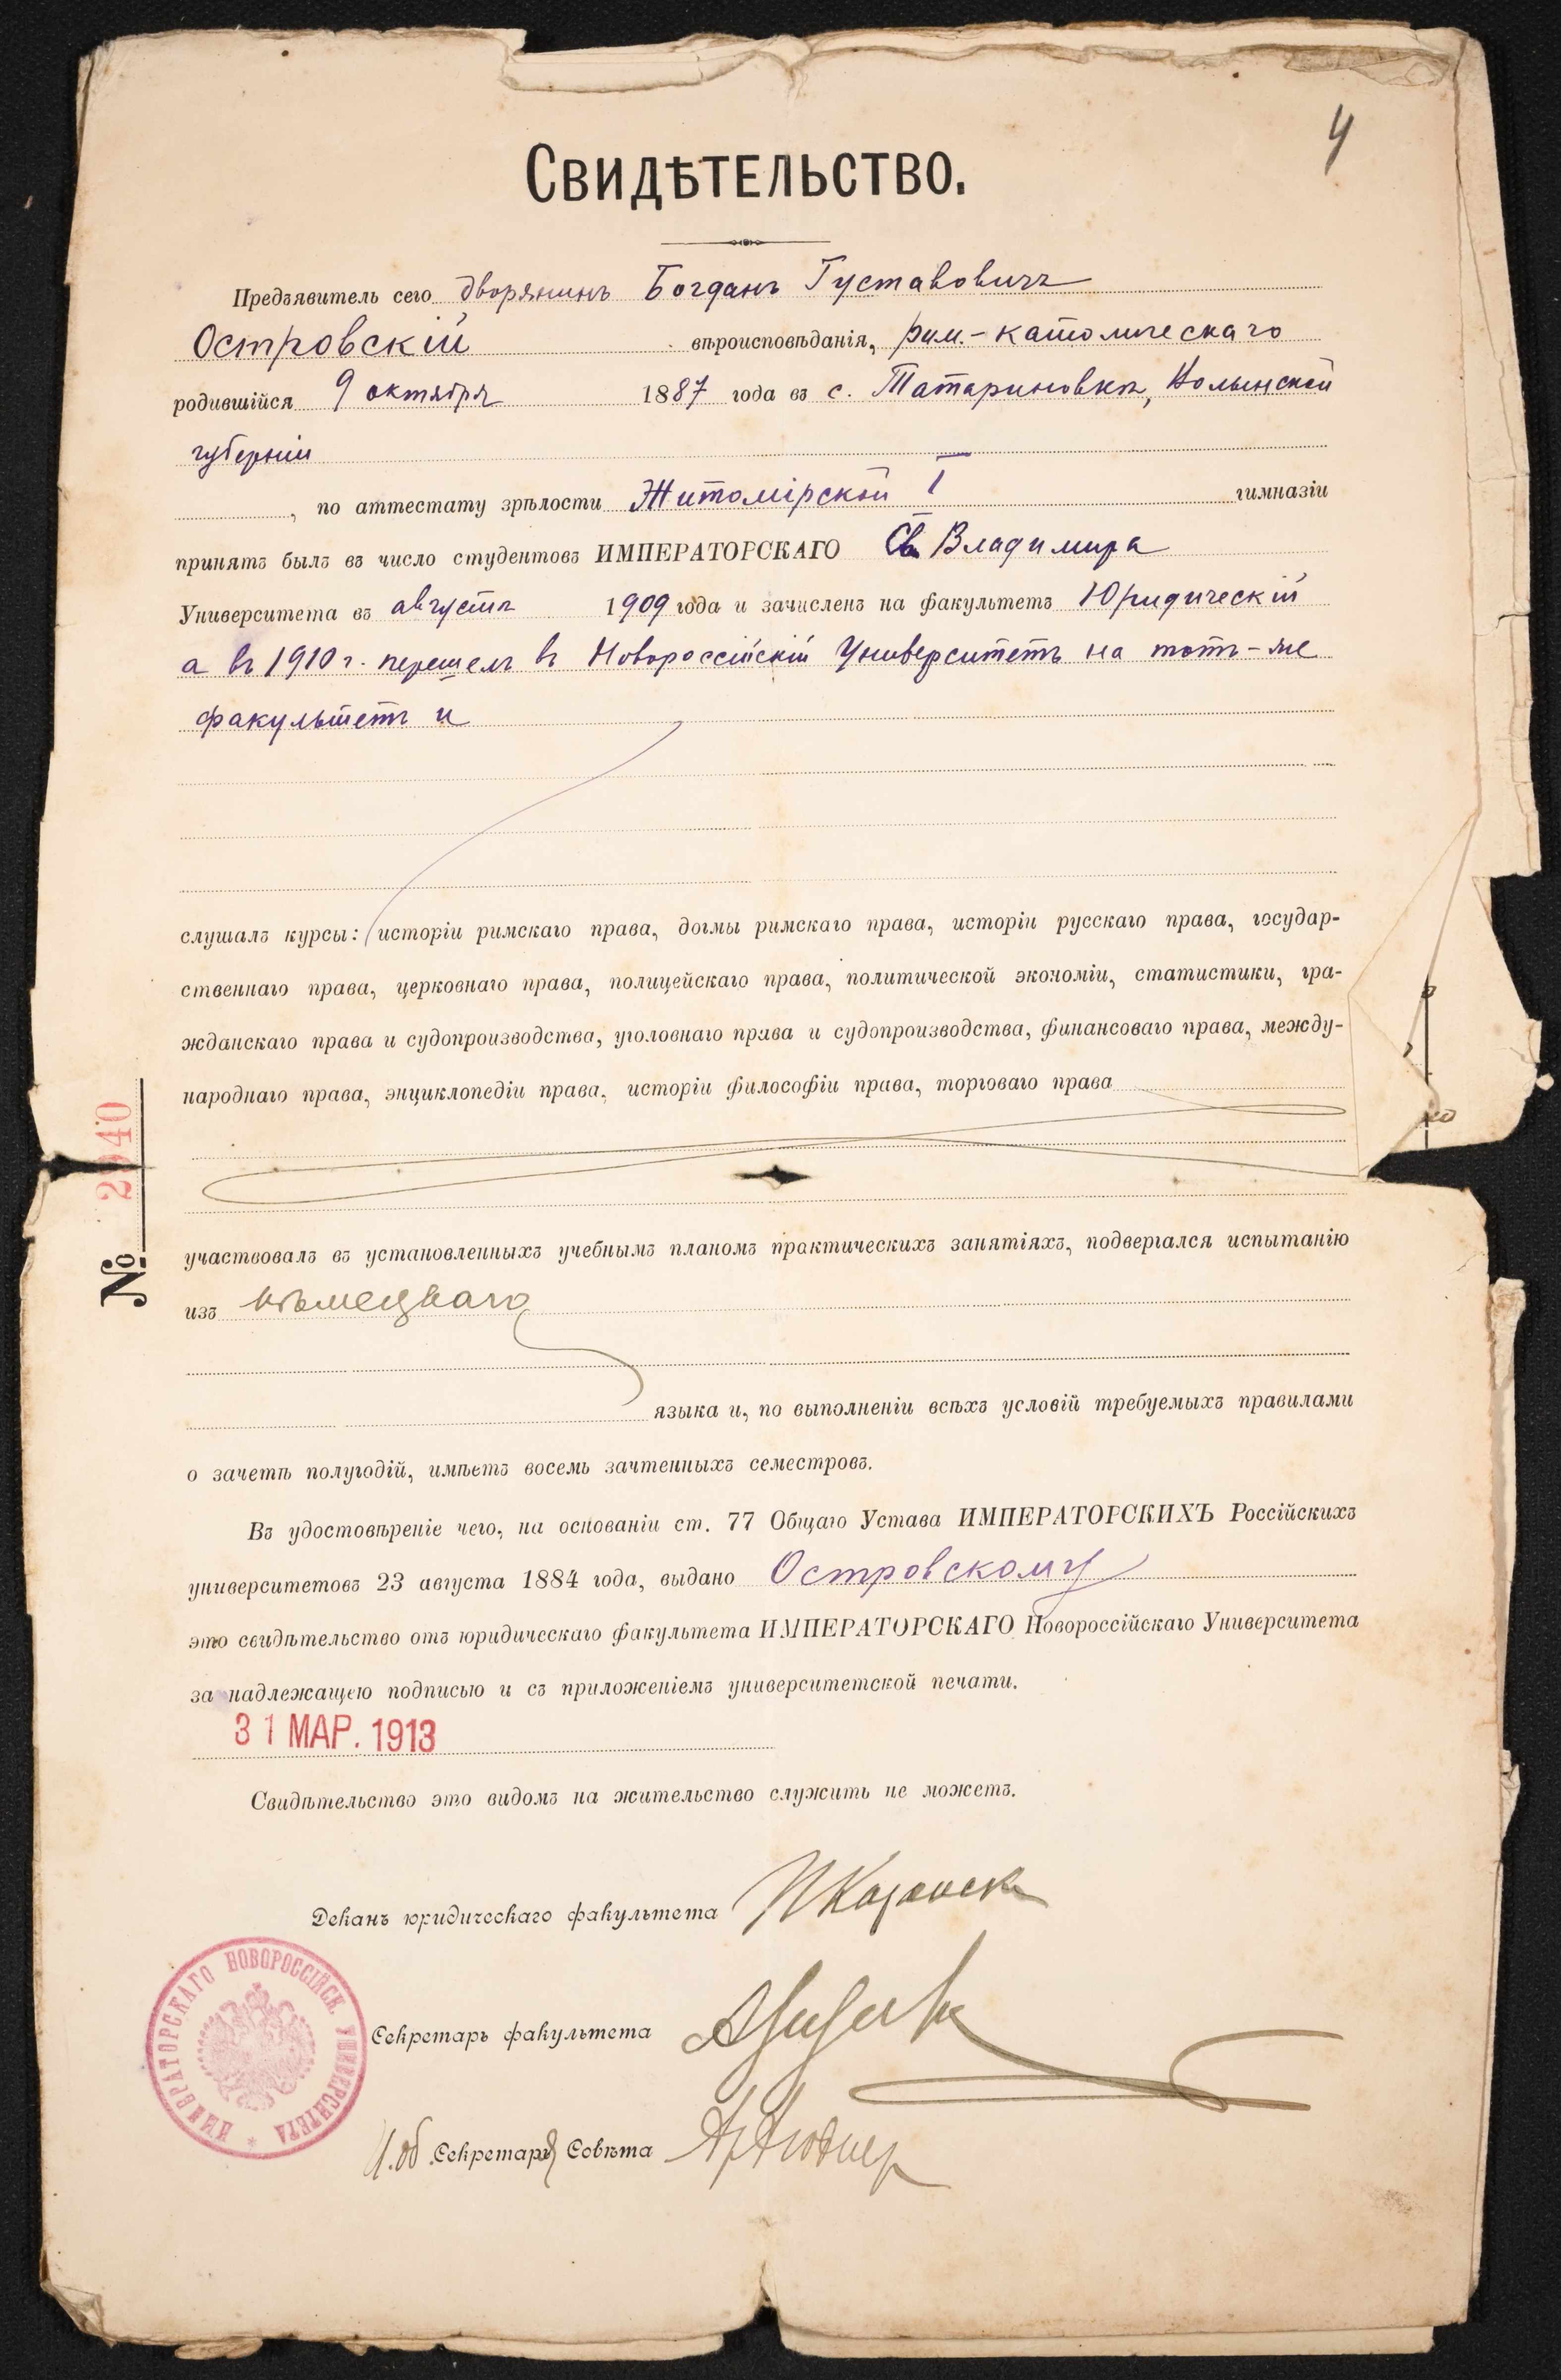 4
Свидѣтельство.
Предъявитель сего дворянинъ Богданъ Густавовичъ
Островскій вѣроисповѣданія, рим.-католическаго
родившійся 9 октября 1887 года въ с. Татариновкѣ, Волынской
губерніи
, по аттестату зрѣлости Житомірской I гимназіи
принятъ былъ въ число студентовъ ИМПЕРАТОРСКАГО Св. Владимира
Университета въ августѣ 1909 года и зачисленъ на факультетъ Юридическій
а въ 1910 г. перешелъ въ Новороссійскій Университетъ на тотъ-же
факультетъ и
слушалъ курсы: исторіи римскаго права, догмы римскаго права, исторіи русскаго права, государ-
ственнаго права, церковнаго права, полицейскаго права, политической экономіи, статистики, гра-
жданскаго права и судопроизводства, уголовнаго права и судопроизводства, финансоваго права, между-
народнаго права, энциклопедіи права, исторіи философіи права, торговаго права
№ 2940
участвовалъ въ установленныхъ учебнымъ планомъ практическихъ занятіяхъ, подвергался испытанію
изъ нѣмецкаго
языка и, по выполненіи всѣхъ условій требуемыхъ правилами
о зачетѣ полугодій, имѣетъ восемь зачтенныхъ семестровъ.
Въ удостовѣреніе чего, на основаніи ст. 77 Общаго Устава ИМПЕРАТОРСКИХЪ Россійскихъ
университетовъ 23 августа 1884 года, выдано Островскому
это свидѣтельство отъ юридическаго факультета ИМПЕРАТОРСКАГО Новороссійскаго Университета
за надлежащею подписью и съ приложеніемъ университетской печати.
31 МАР. 1913
Свидѣтельство это видомъ на жительство служить не можетъ.
Деканъ юридическаго факультета П Казанск
Секретарь факультета
И.об. Секретаря Совѣта
ИМПЕРАТОРСКАГО НОВОРОССІЙСК. УНИВЕРСИТЕТА